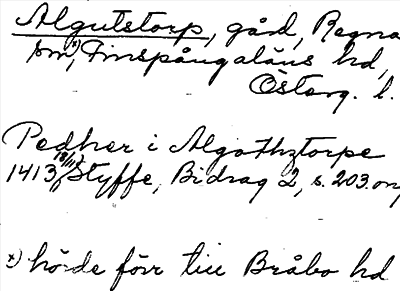 Algutstorp, gård, Regna
sn*), Finspångaläns hd,
Österg. l.
Pedher i Algothztorpe
1413 18/11 Styffe, Bidrag 2, s. 203. orig.
x) hörde förr till Bråbo hd